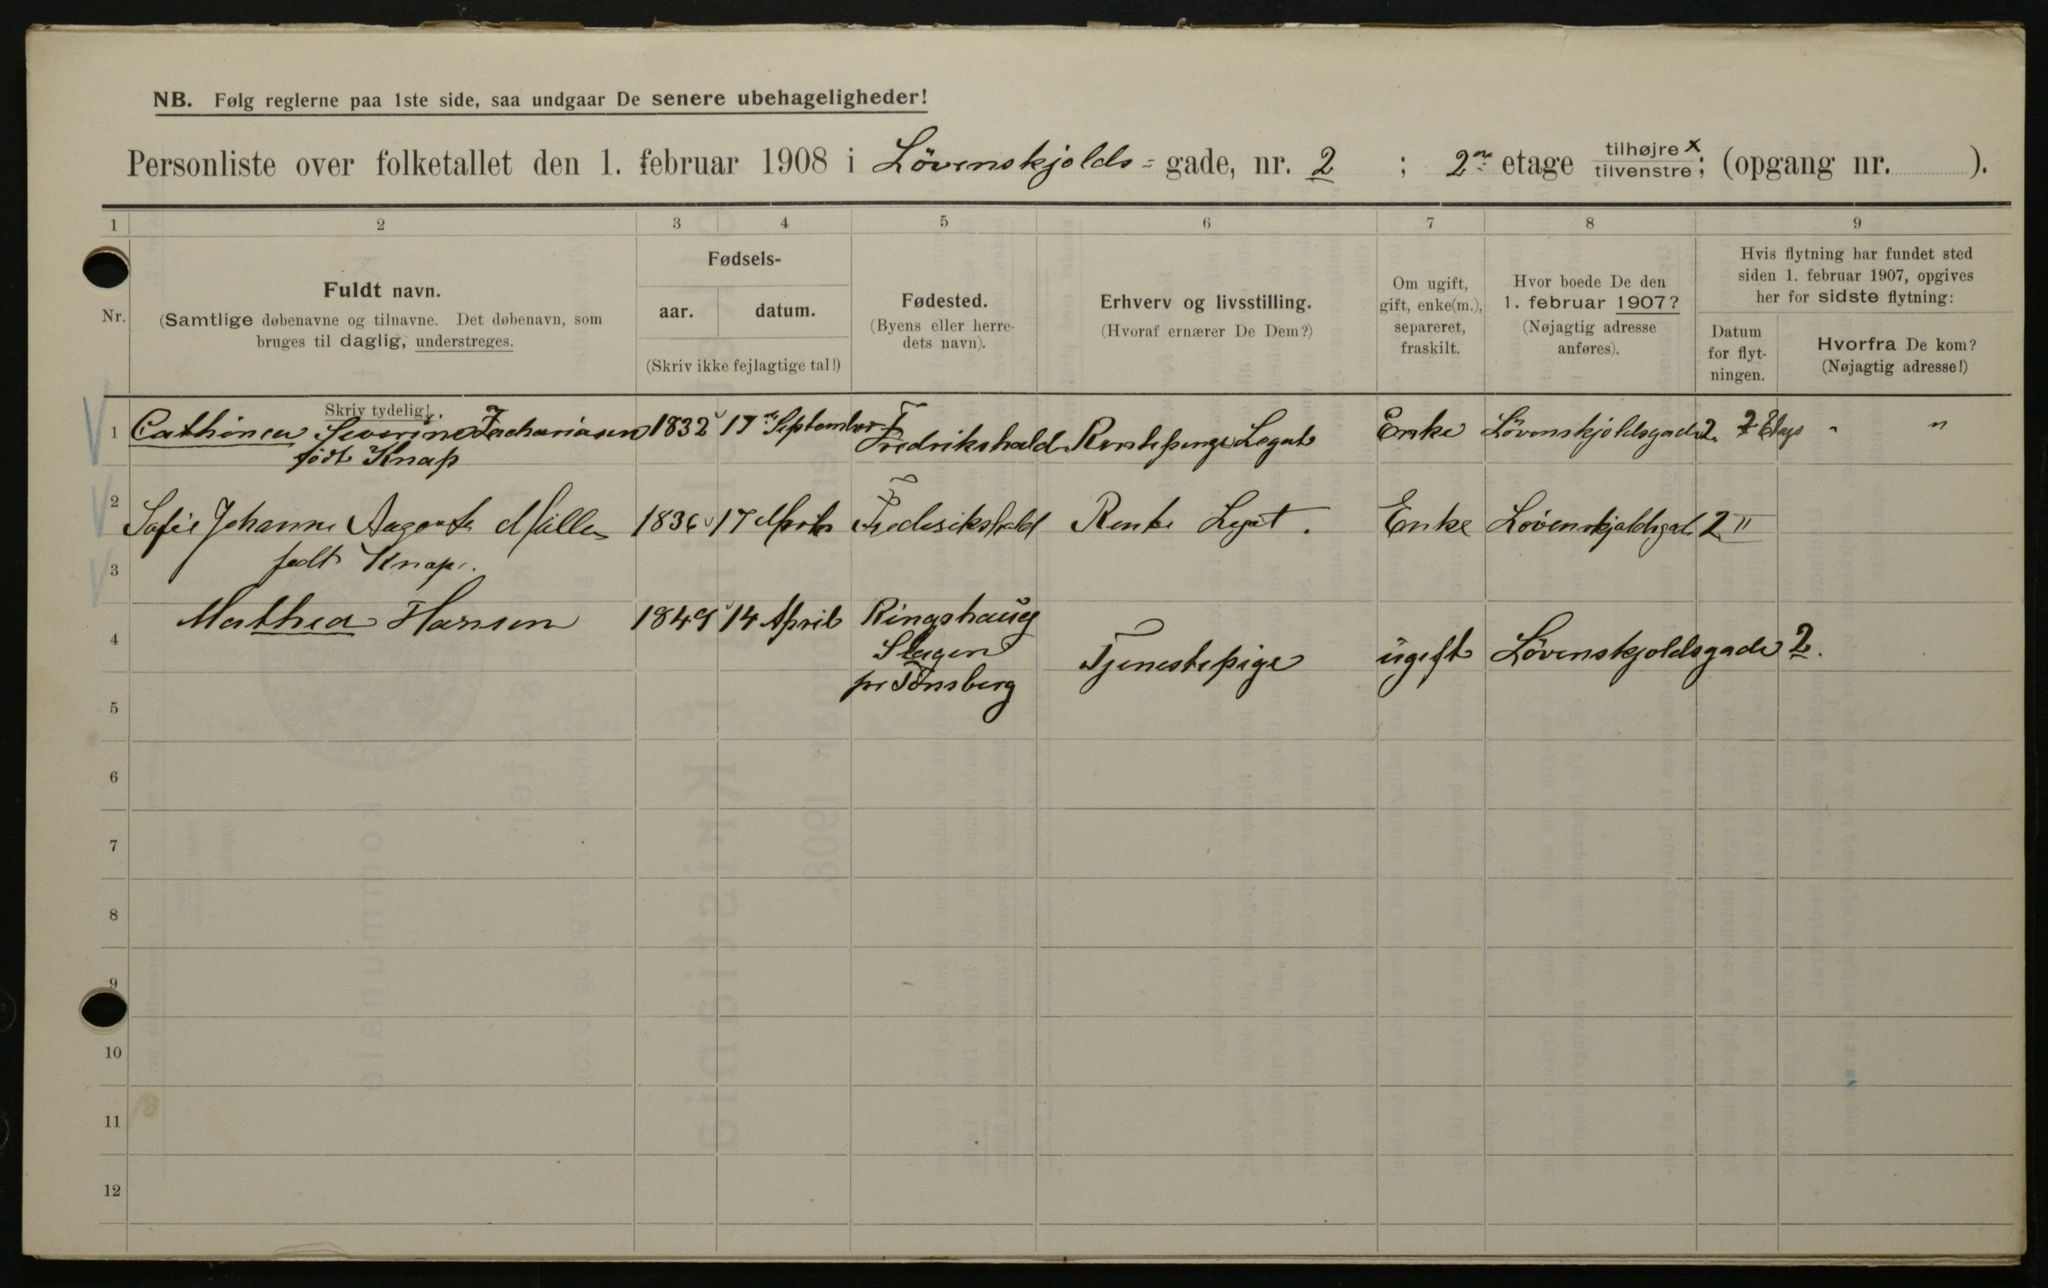 NB. Følg reglerne paa 1ste side, saa undgaar De senere ubehageligheder!
Personliste over folketallet den 1. februar 1908 i Lövenskjolds- gade, nr. 2 ; 2den etage tilhøjre x / tilvenstre; (opgang nr. ).
1 2 3 4 5 6 7 8 9
Nr.
Fuldt navn.
(Samtlige døbenavne og tilnavne. Det døbenavn, som
bruges til daglig, understreges.
Skriv tydelig!
Fødsels-
aar. datum.
(Skriv ikke fejlagtige tal!)
Fødested.
(Byens eller herre-
dets navn).
Erhverv og livsstilling.
(Hvoraf ernærer De Dem?)
Om ugift,
gift, enke(m.),
separeret,
fraskilt.
Hvor boede De den
1. februar 1907?
(Nøjagtig adresse
anføres).
Hvis flytning har fundet sted
siden 1. februar 1907, opgives
her for sidste flytning:
Datum
for flyt-
ningen.
Hvorfra De kom?
(Nøjagtig adresse!)
1 Cathinca Severine Zachariasen 1832 17 September Fredrikshald Rentepenge Legat Enke Lövenskjoldsgade 2. 2 Etage " "
født Knap
2 Sofie Johanne Møller 1836 17 Frederikshald Rente Legat. Enke 2 II
3 født Knap.
Mathea Hansen 1849 14 April Ringshaug
4 Slagen Tjenestepige ugift Lövenskjoldsgade 2.
pr Tönsberg
5
6
7
8
9
10
11
12